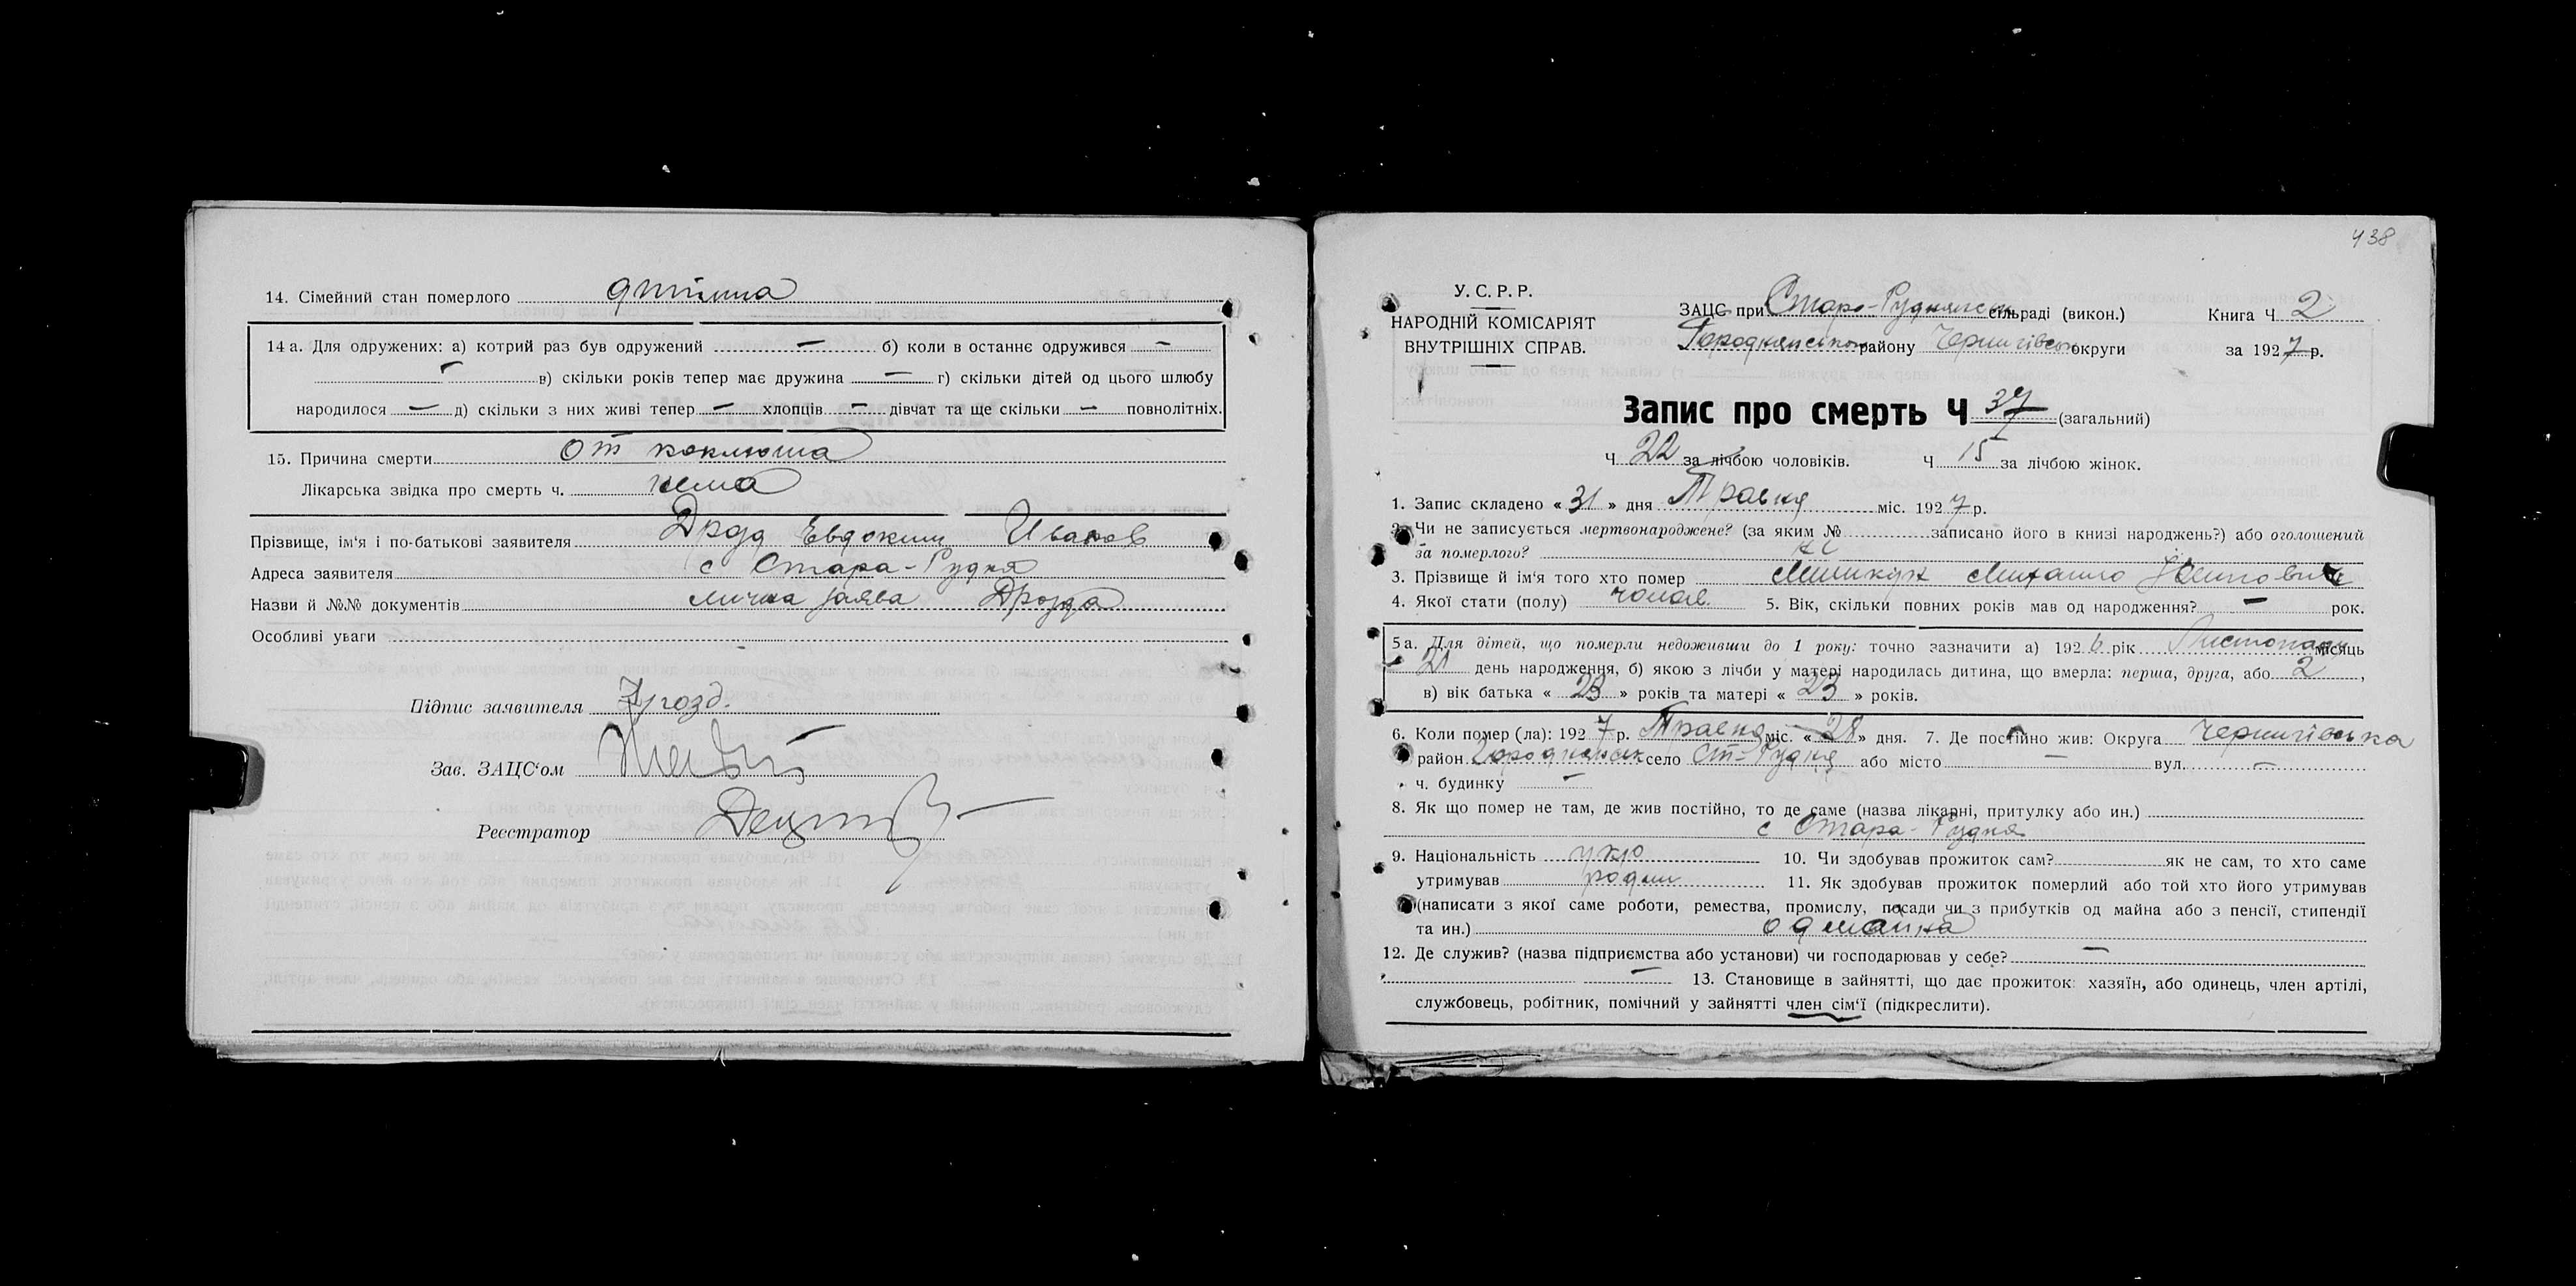 14. Сімейний стан померлого дитина
14 а. Для одружених: а) котрий раз був одружений — б) коли в останнє одружився —
— в) скільки років тепер має дружина — г) скільки дітей од цього шлюбу
народилося — д) скільки з них живі тепер — хлопців — дівчат та ще скільки — повнолітніх.
15. Причина смерти от коклюша
Лікарська звідка про смерть ч. нема
Прізвище, ім'я і по-батькові заявителя Дрозд Евдоким Иванов
Адреса заявителя с Стара-Рудня
Назви й №№ документів лична заява Дрозда
Особливі уваги
Підпис заявителя Дрозд.
Зав. ЗАЦС'ом
Реєстратор
438
У. С. Р. Р.
НАРОДНІЙ КОМІСАРІЯТ
ВНУТРІШНІХ СПРАВ.
ЗАЦС при Старо-Руднянск сільраді (викон.) Книга Ч 2
району Чернигівськ округи за 1927 р.
Запис про смерть Ч 37 (загальний)
Ч 22 за лічбою чоловіків. Ч 15 за лічбою жінок.
1. Запис складено « 31 » дня Травня міс. 1927 р.
2. Чи не записується мертвонароджене? (за яким № записано його в книзі народжень?) або оголошений
за померлого? ні
3. Прізвище й ім'я того хто помер Михайло
4. Якої стати (полу) чолов. 5. Вік, скільки повних років мав од народження? — рок.
5 а. Для дітей, що померли недоживши до 1 року: точно зазначити а) 1926 рік Листопада місяць
21 день народження, б) якою з лічби у матері народилась дитина, що вмерла: перша, друга, або 2,
в) вік батька « 23 » років та матері « 23 » років.
6. Коли помер (ла): 1927 р. Травня міс. « 28 » дня. 7. Де постійно жив: Округа Чернигівська
район Городнянськ село Ст-Рудня або місто — вул. —
ч. будинку —
8. Як що помер не там, де жив постійно, то де саме (назва лікарні, притулку або ин.)
с Стара-Рудня
9. Національність укр 10. Чи здобував прожиток сам? як не сам, то хто саме
утримував родит 11. Як здобував прожиток померлий або той хто його утримував
(написати з якої саме роботи, ремества, промислу, посади чи з прибутків од майна або з пенсії, стипендії
та ин.) од майна
12. Де служив? (назва підприємства або установи) чи господарював у себе? —
— 13. Становище в зайнятті, що дає прожиток: хазяїн, або одинець, член артілі,
службовець, робітник, помічний у зайнятті член сім'ї (підкреслити).